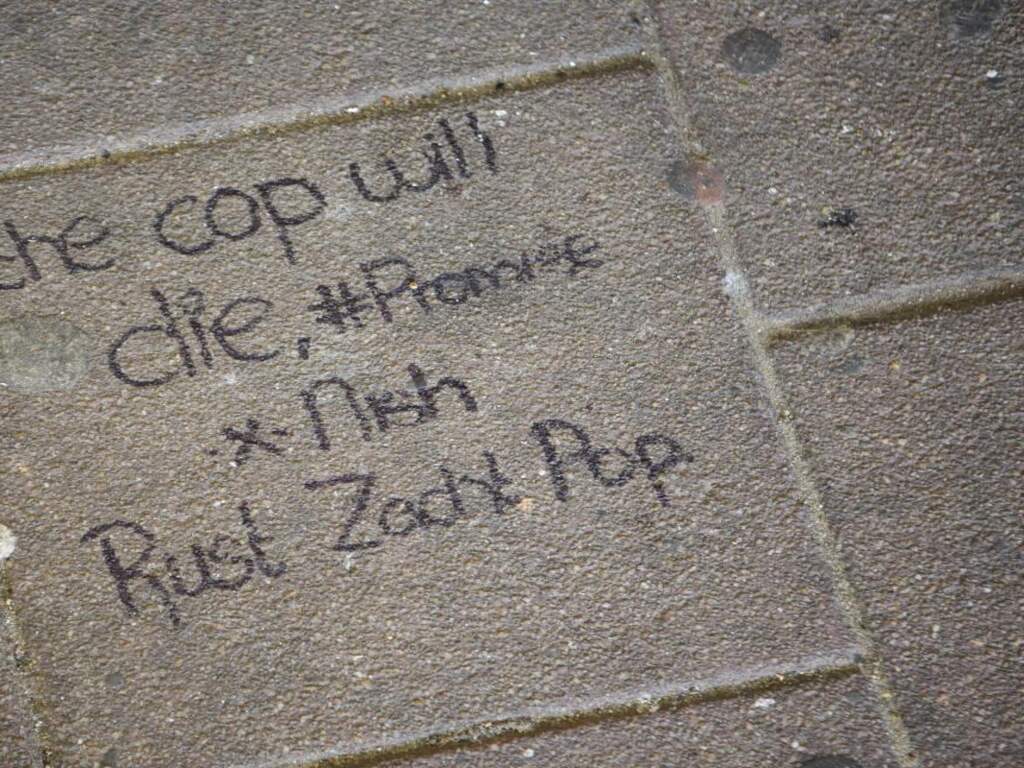 the cop will
die, #Promise
x-Nish
Rust Zacht Pop